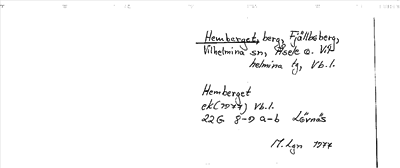 Hemberget, berg, Fjällboberg,
Vilhelmina sn, Åsele o. Vil-
helmina tg, Vb.l.
Hemberget
ek(1977) Vb.l.
22G 8-9 a-b Lövnäs
M. Lgn 1977